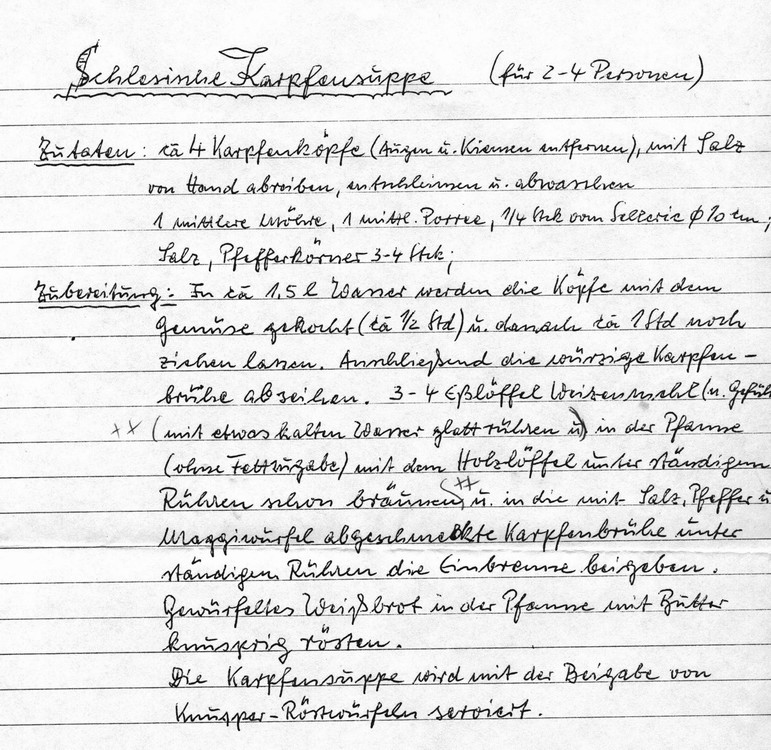 Schlesische Karpfensuppe (für 2-4 Personen)
Zutaten: ca 4 Karpfenköpfe (Augen u. Kiemen entfernen), mit Salz
von Hand abreiben, entschleimen u. abwaschen
1 mittlere Möhre, 1 mittl. Porree, 1/4 Stck vom Sellerie Ø 10 cm;
Salz, Pfefferkörner 3-4 Stck;
Zubereitung: In ca 1,5 l Wasser werden die Köpfe mit dem
Gemüse gekocht (ca 1/2 Std) u. danach ca 1 Std noch
ziehen lassen. Anschließend die würzige Karpfen-
brühe abseihen. 3-4 Eßlöffel Weizenmehl (n. Gefühl
xx (mit etwas kalten Wasser glatt rühren u) in der Pfanne
(ohne Fettzugabe) mit dem Holzlöffel unter ständigem
Rühren schon bräunen, (xx u. in die mit Salz, Pfeffer u
Maggiwürfel abgeschmeckte Karpfenbrühe unter
ständigem Rühren die Einbrenne beigeben.
Gewürfeltes Weißbrot in der Pfanne mit Butter
knusprig rösten.
Die Karpfensuppe wird mit der Beigabe von
Knusper-Röstwürfeln serviert.